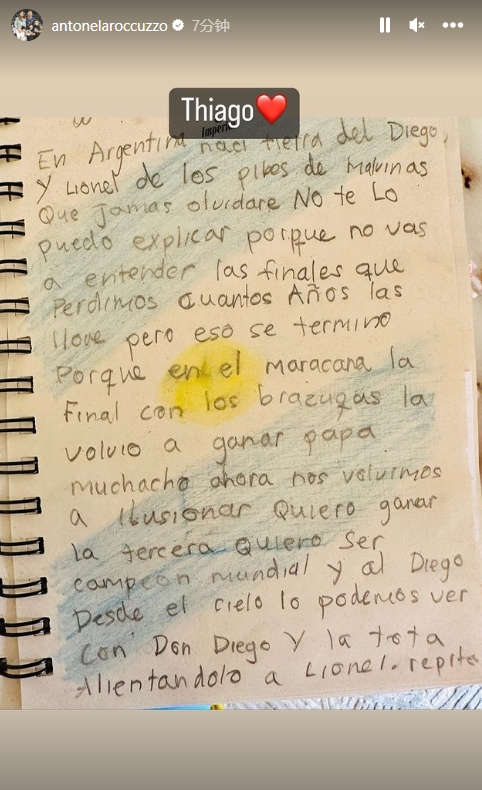 antonelaroccuzzo 7分钟
Thiago❤️
En Argentina naci tierra del Diego,
y Lionel de los pibes de Malvinas
Que jamas olvidare No te Lo
puedo explicar porque no vas
a entender las finales que
Perdimos cuantos Años las
llore pero eso se termino
Porque en el maracana la
Final con los brazugas la
volvio a ganar papa
muchacho ahora nos volvimos
a Ilusionar Quiero ganar
la tercera Quiero Ser
campeon mundial y al Diego
Desde el cielo lo podemos ver
con Don Diego y la tota
Alientandolo a Lionel. repite